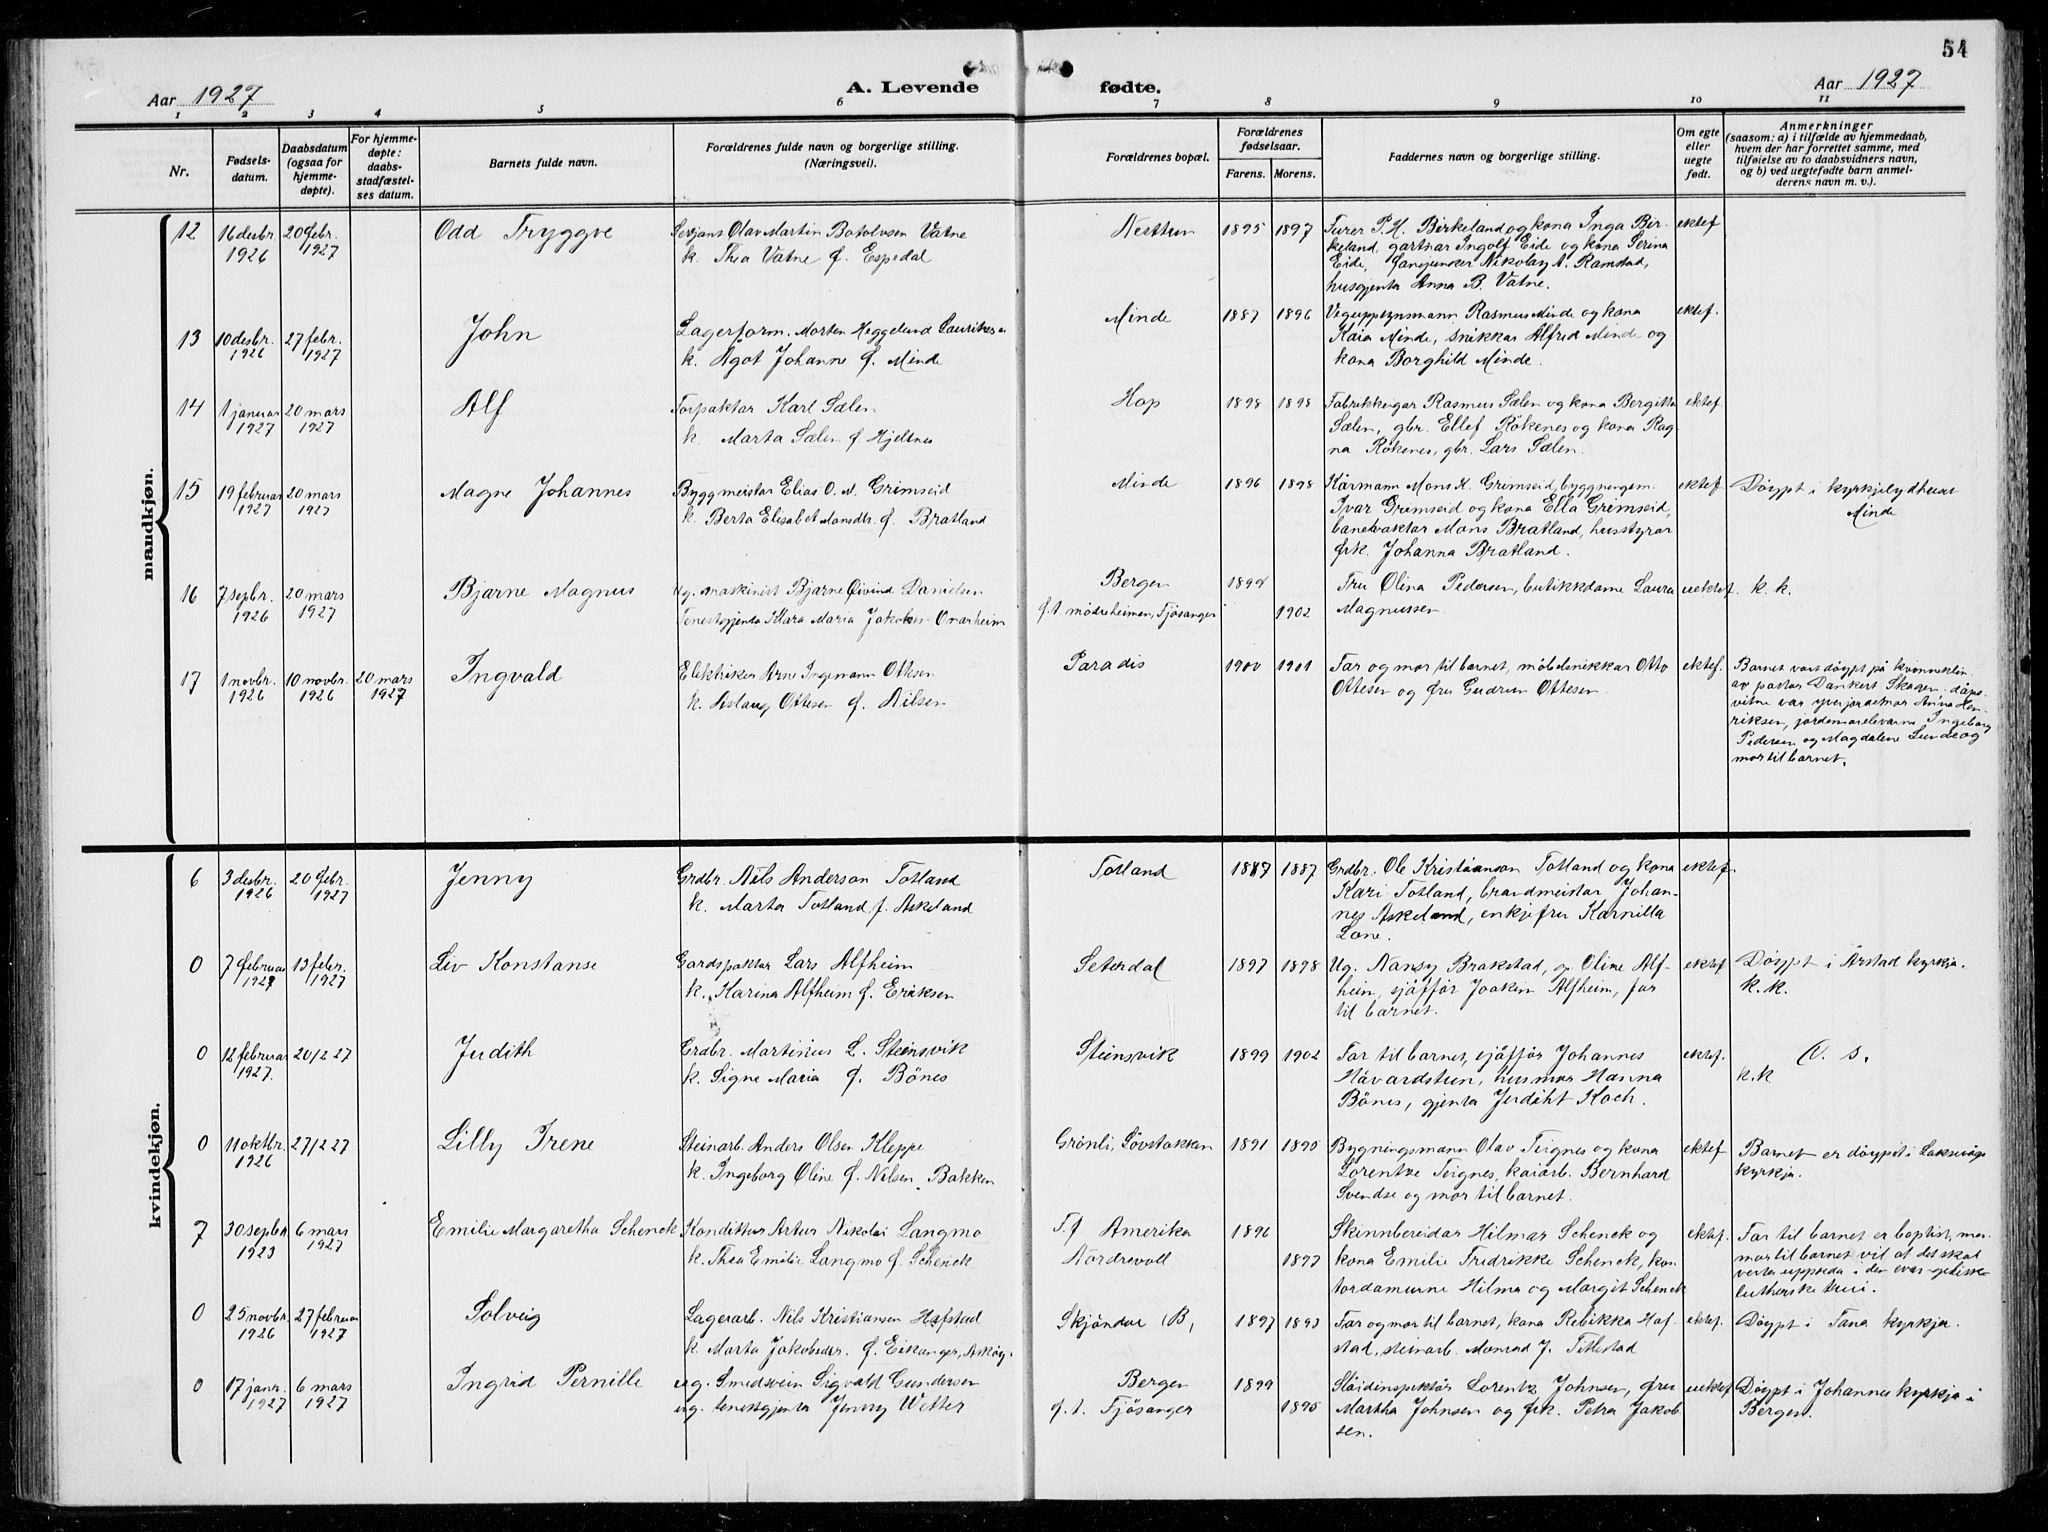 54
Aar 1927
A. Levende fødte.
Aar 1927
1 2 3 4 5 6 7 8 9 10 11
Nr.
Fødsels-
datum.
Daabsdatum
(ogsaa for
hjemme-
døpte).
For hjemme-
døpte:
daabs-
stadfæstel-
ses datum.
Barnets fulde navn.
Forældrenes fulde navn og borgerlige stilling.
(Næringsvei).
Forældrenes bopæl.
Forældrenes
fødselsaar.
Farens. Morens.
Faddernes navn og borgerlige stilling.
Om egte
eller
uegte
født.
Anmerkninger
(saasom: a) i tilfælde av hjemmedaab,
hvem der har forrettet samme, med
tilføielse av to daabsvidners navn,
og b) ved uegtefødte barn anmel-
derens navn m. v.).
mandkjøn.
12
16 desbr.
1926
20 febr.
1927
Odd Tryggve
Serjant Olav Martin Botolvsen Vatne
k. Thea Vatne f. Espedal
Nesttun
1895 1897
Furer P. H. Birkeland og kona Inga Bir-
keland, gartnar Ingolf Eide og kona Serina
Eide, fanejunker Nikolay A. Ramstad,
husgjenta Anna B. Vatne.
ektef
13
10 desbr.
1926
27 febr.
1927
John
Lagerform. Morten Heggelund Lauritzsen
k. Ågot Johanne f. Minde
Minde
1887 1896
Veguppsynsmann Rasmus Minde og kona
Kaia Minde, snikkar Alfred Minde og
kona Borghild Minde.
ektef.
14
1 januar
1927
20 mars
1927
Alf
Forpaktar Karl Sælen
k. Marta Sælen f. Hjeltnes
Hop
1898 1898
Fabrikkeigar Rasmus Sælen og kona Bergitta
Sælen, gbr. Ellef Rökenes og kona Rag-
na Rökenes, gbr. Lars Sælen.
ektef
15
19 februar
1927
20 mars
1927
Magne Johannes
Byggmeistar Elias O. M. Grimseid
k. Berta Elisabet Monsdtr. f. Bratland
Minde
1896 1898
Körmann Mons K. Grimseid, byggningsm.
Ivar Grimseid og kona Ella Grimseid,
banevaktar Mons Bratland, husstyrar
frk. Johanna Bratland.
ektef
Döypt i kyrkjelydhuset
Minde
16
7 sepbr.
1926
20 mars
1927
Bjarne Magnus
Ug. maskinist Bjarne Öivind Danielsen
Tenestgjenta Klara Maria Jakobsen Onarheim
Bergen
f. t. mödreheimen, Fjösanger
1899
1902
Fru Olina Pedersen, butikkdame Laura
Magnussen.
uektef.
k. k.
17
1 novbr.
1926
10 novbr.
1926
20 mars
1927
Ingvald
Elektriker Arne Ingemann Ottesen
k. Aslaug Ottesen f. Nilsen
Paradis
1900 1901
Far og mor til barnet, möbelsnikkar Otto
Ottesen og fru Gudrun Ottesen.
ektef.
Barnet vart döypt på kvinneklin.
av pastor Dankert Skagen, dåps-
vitne var yverjordmor Anna Hen-
riksen, jordmorelevarne Ingeborg
Pedersen og Magdalene Lunde og
mor til barnet.
kvindekjøn.
6
3 desbr.
1926
20 febr.
1927
Jenny
Grdbr. Nils Anderson Totland
k. Marta Totland f. Askeland
Totland
1887 1887
Grdbr. Ole Kristianson Totland og kona
Kari Totland, brandmeistar Johan-
nes Askeland, enkjefru Karnilla
Lone.
ektef.
0
7 februar
1927
13 febr.
1927
Liv Konstanse
Gardspaktar Lars Alfheim
k. Karina Alfheim f. Eriksen
Seterdal
1897 1898
Ug. Nansy Brakstad, g. Oline Alf-
heim, sjåfför Joakim Alfheim, far
til barnet.
ektef
Döypt i Årstad kyrkja.
k. k.
0
12 februar
1927.
20/2 27
Judith
Grdbr. Martinus L. Steinsvik
k. Signe Maria f. Bönes
Steinsvik
1899 1902
Far til barnet, sjåfför Johannes
Håvardstun, husmor Hanna
Bönes, gjenta Judiht Koch.
ektef.
O. s.
k. k
0
11 oktbr.
1926
27/2 27
Lilly Irene
Steinarb. Anders Olsen Kleppe
k. Ingeborg Oline f. Nilsen Bakken
Grönli, Lövstakken
1891 1895
Bygningsmann Olav Teignes og kona
Lorentze Teignes, kaiarb. Bernhard
Svendse og mor til barnet.
ektef
Barnet er döypt i Laksevåg
kyrkja.
7
30 septbr
1923
6 mars
1927
Emilie Margaretha Schenck
Kondittur Artur Nikolai Langmo
k. Thea Emilie Langmo f. Schenck
F. f. Amerika
Nordrevoll
1896
1897
Skinnbereidar Hilmar Schenck og
kona Emilie Fredrikke Schenck, kon-
tordamurne Hilma og Margit Schenck
ektef.
Far til barnet er baptist, men
mor til barnet vil at det skal
verta uppseda i den evangeliske
lutherske trui.
0
25 novbr.
1926
27 februar
1927
Solveig
Lagerarb. Nils Kristiansen Hafstad
k. Marta Jakobsdtr. f. Eikanger, Askøy.
Skjöndal (B)
1897 1893
Far og mor til barnet, kona Rebikka Haf-
stad, steinarb. Monrad J. Titlestad
ektef.
Döypt i Fana kyrkja.
0
17 janr.
1927
6 mars
1927
Ingrid Pernille
ug. Smedsvein Sigvald Gundersen
ug. tenestgjenta Jenny Wetter
Bergen
f. t. Fjösanger
1899
1895
Slöidinspektör Lorentz Johnsen, fru
Martha Johnsen og frk. Petra Jakob-
sen.
uektef
Döypt i Johannes kyrkja i
Bergen.